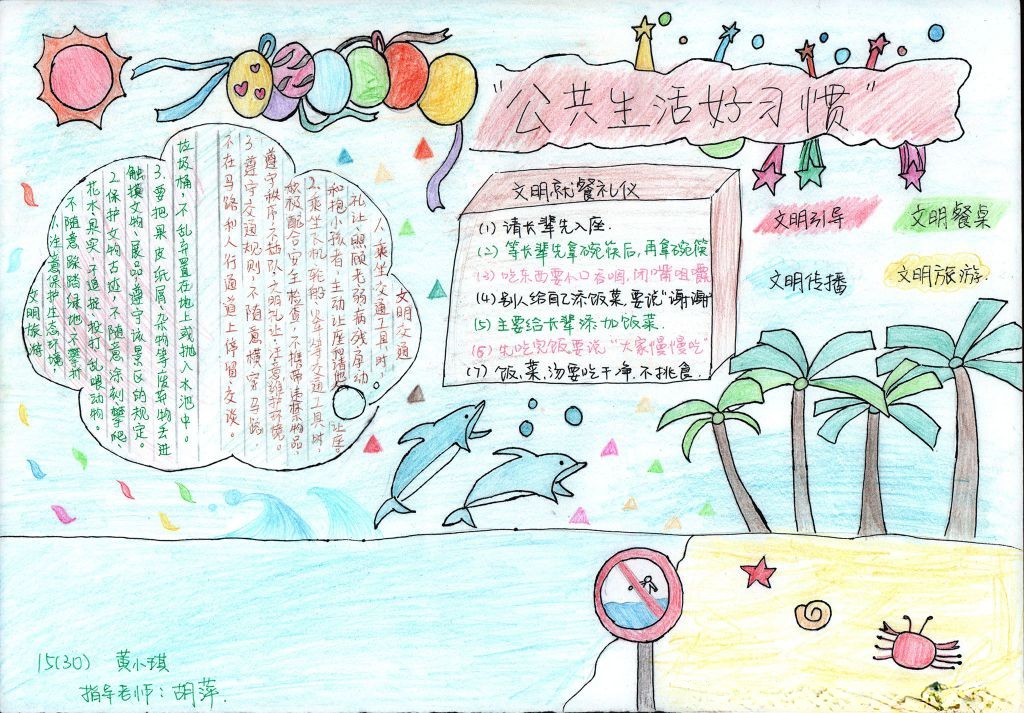 "公共生活好习惯"
文明就餐礼仪
(1) 请长辈先入座.
(2) 等长辈先拿碗筷后,再拿碗筷
(3) 吃东西要小口吞咽,闭嘴咀嚼
(4) 别人给自己添饭菜,要说"谢谢"
(5) 主要给长辈添加饭菜.
(6) 先吃完饭要说"大家慢慢吃"
(7) 饭、菜、汤要吃干净,不挑食.
文明引导
文明餐桌
文明传播
文明旅游.
文明交通
1、乘坐交通工具时,
礼让、照顾老弱病残孕幼
和抱小孩者,主动让座
2、乘坐飞机、轮船、火车等交通工具时,
积极配合安全检查,不携带违禁物品,
遵守秩序
3、遵守交通规则,不随意横穿马路,
不在马路和人行通道上停留、交谈。
文明旅游
1、注意保护生态环境,
不随意踩踏绿地、不攀折
花木果实,不追捉、投打、乱喂动物。
2、保护文物古迹,不随意涂刻、攀爬、
触摸文物、展品,遵守该景区的规定。
3、要把果皮纸屑、杂物等废弃物丢进
垃圾桶,不乱弃置在地上或抛入水池中。
15(30) 黄小琪
指导老师:胡萍.